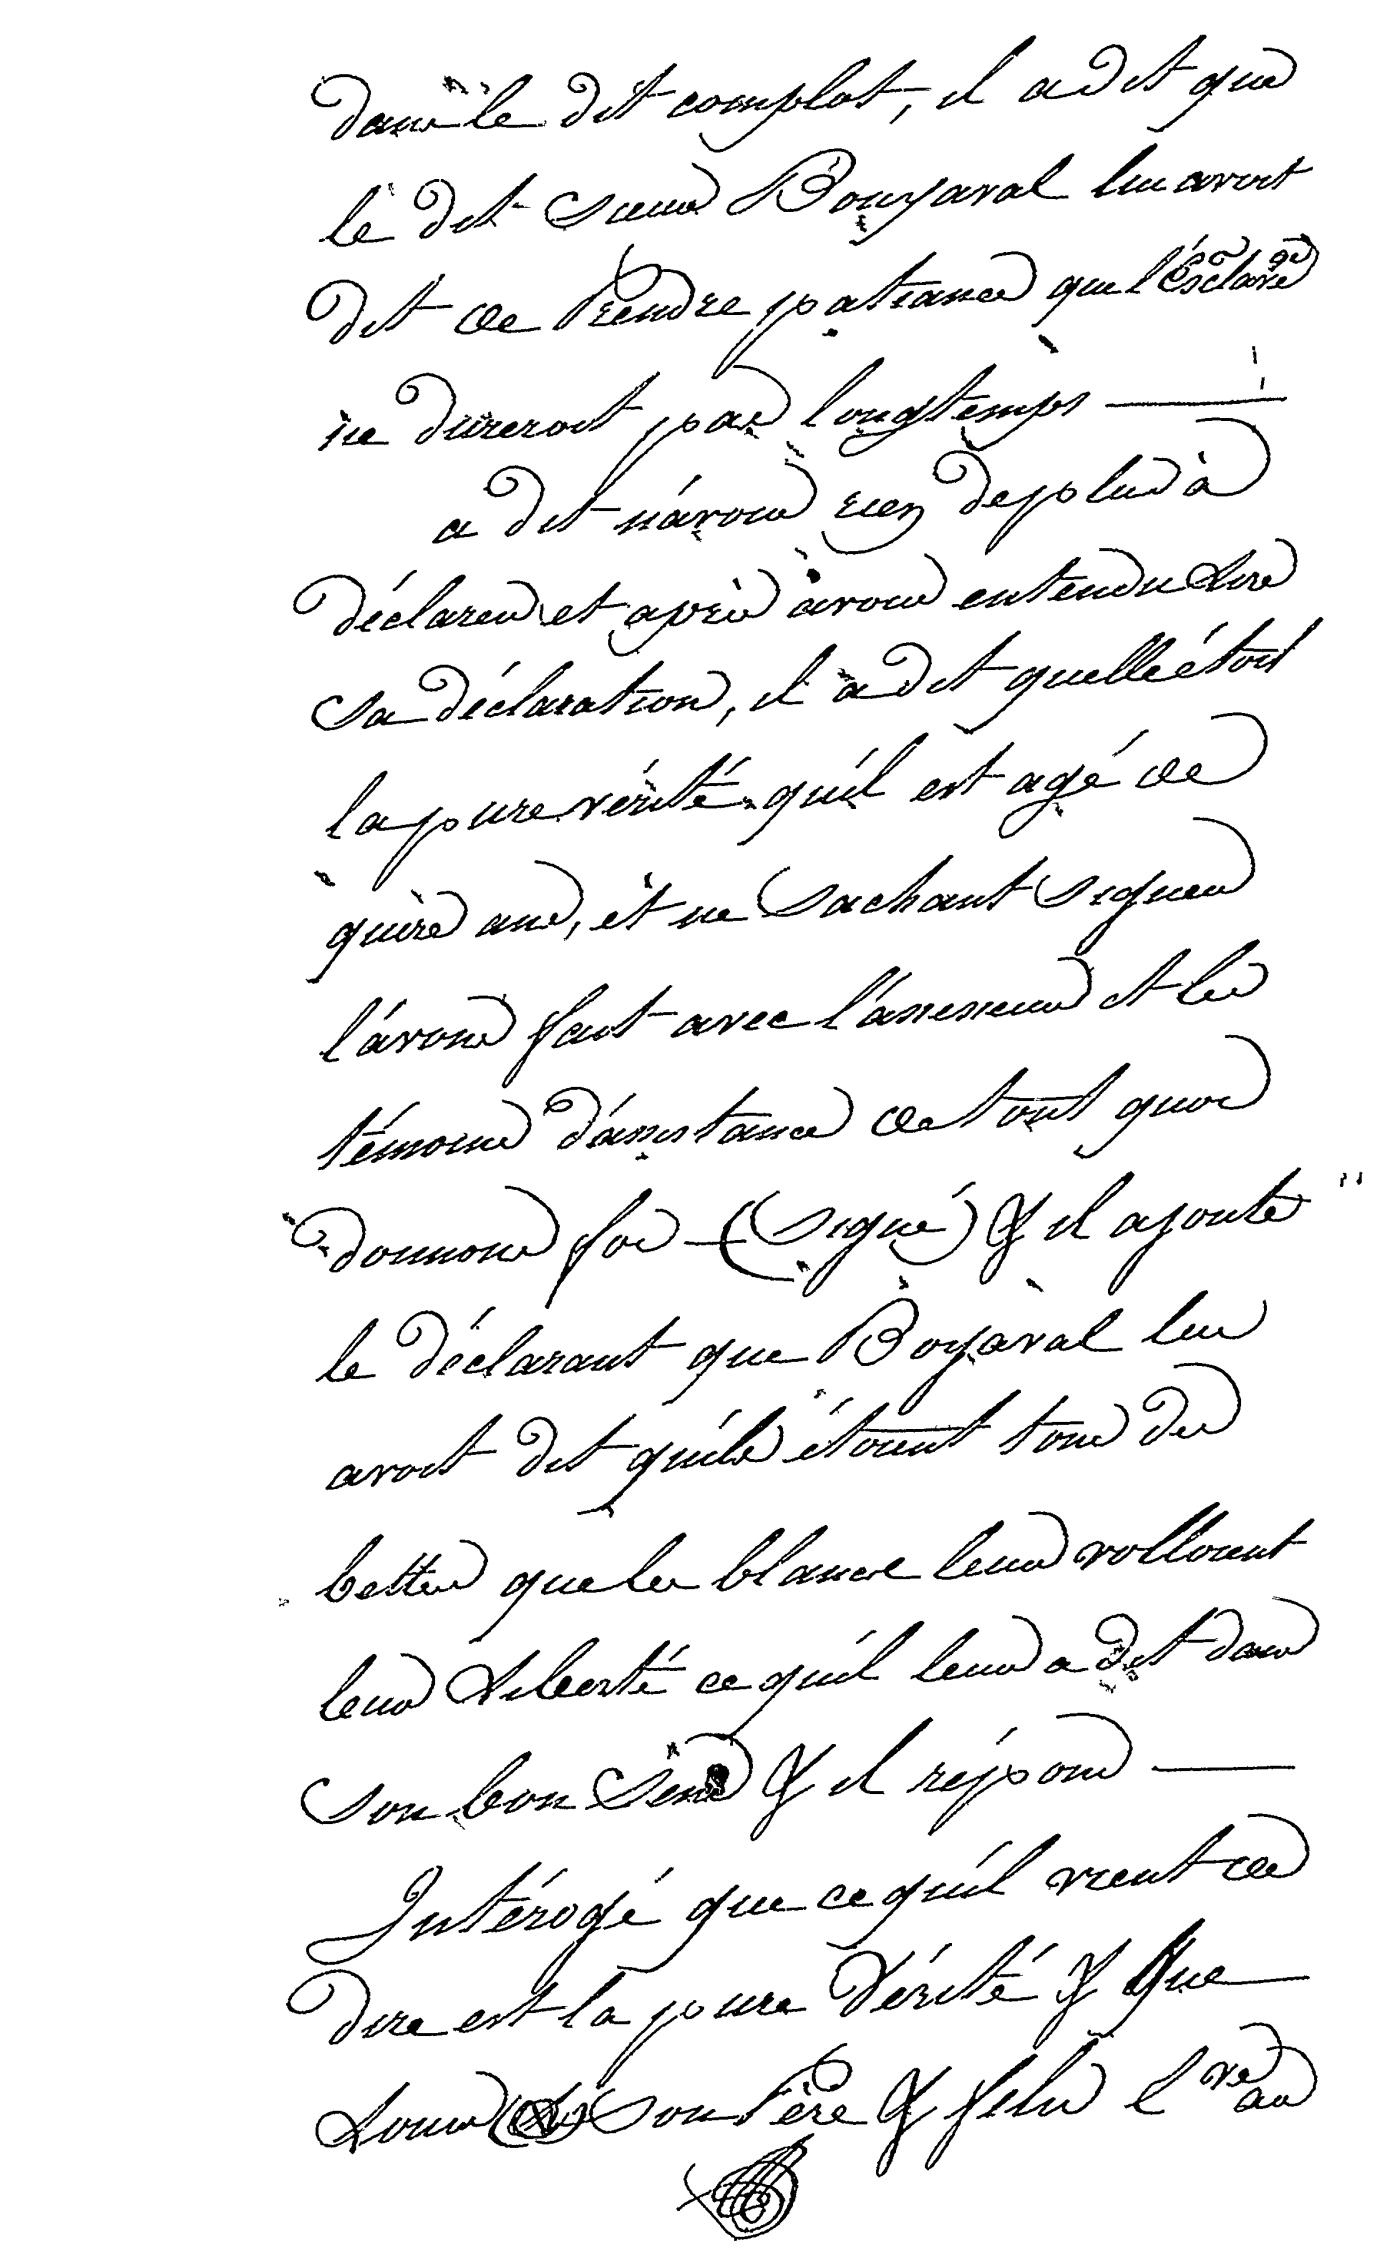 dans le dit complot, il a dit que
le dit Sieur Bouyaval lui avoit
dit de Prendre patiance que l'Esclavage
ne dureroit pas longtemps
a dit n'avoir rien de plus à
déclarer et après avoir entendu Lire
sa déclaration, il a dit quelle étoit
la pure vérité qu'il est agé de
quinse ans, et ne Sachant Signer
l'avons fait avec l'assesseur et les
témoins d'assistance de tout quoi
donnons foi (Signé) & il ajoute
le déclarant que Boyaval lui
avoit dit qu'ils étoient tous des
bettes que les blancs leurs vollouent
leur Liberté ce qu'il leur a dit dans
son bon Sens & il répond
Intérogé que ce qu'il vient de
dire est la pure Vérité & Que
Louis Son Père & filis l ve au